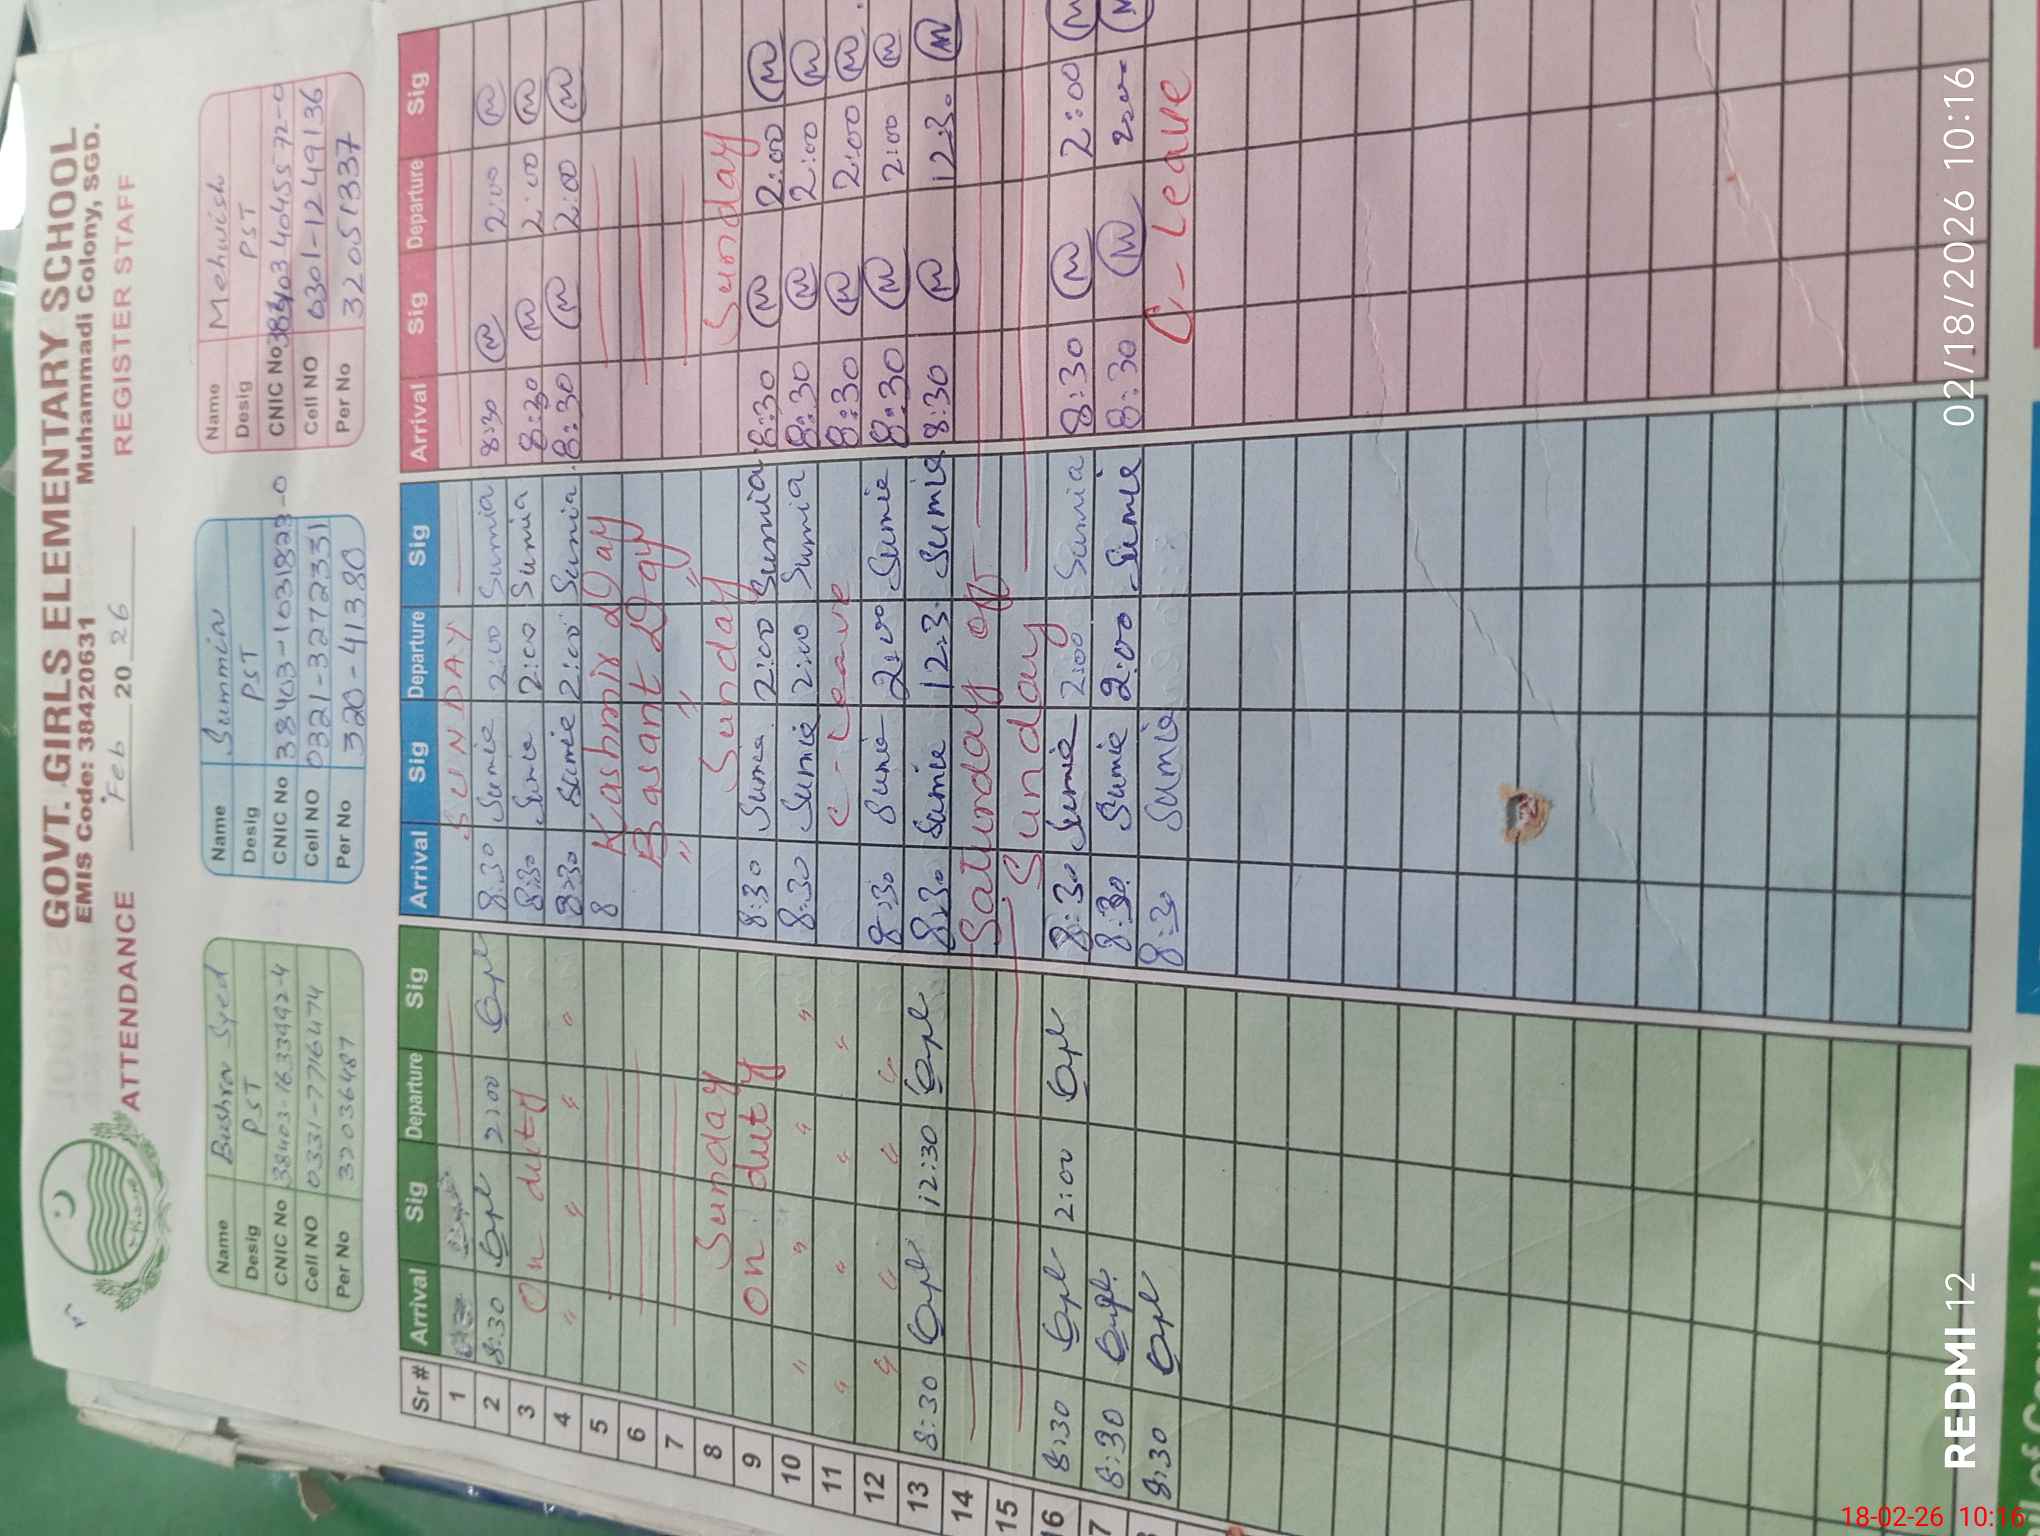 GOVT. GIRLS ELEMENTARY SCHOOL
EMIS Code: 38420631 Muhammadi Colony, SGD.
ATTENDANCE Feb 20 26 REGISTER STAFF
Name Bushra Syed
Desig PST
CNIC No 38403-1633492-4
Cell NO 0331-7716474
Per No 32036487
Name Summia
Desig PST
CNIC No 38403-1031823-0
Cell NO 0321-3272331
Per No 320-41380
Name Mehwish
Desig PST
CNIC No 384034045572-0
Cell NO 0301-1249136
Per No 32051337
Sr # Arrival Sig Departure Sig Arrival Sig Departure Sig Arrival Sig Departure Sig
1 SUNDAY
2 8:30 2:00 8:30 Sumia 2:00 Sumia 8:30 M 2:00 M
3 On duty 8:30 Sumia 2:00 Sumia 8:30 M 2:00 M
4 " " " " 8:30 Sumia 2:00 Sumia 8:30 M 2:00 M
5 8 Kashmir Day
6 Basant Day
7 " " "
8 Sunday Sunday Sunday
9 On duty 8:30 Sumia 2:00 Sumia 8:30 M 2:00 M
10 " " " " 8:30 Sumia 2:00 Sumia 8:30 M 2:00 M
11 " " " " C-Leave 8:30 M 2:00 M
12 " " " " 8:30 Sumia 2:00 Sumia 8:30 M 2:00 M
13 8:30 12:30 8:30 Sumia 12:3 Sumia 8:30 M 12:30 M
14 Saturday off
15 Sunday
16 8:30 2:00 8:30 Sumia 2:00 Sumia 8:30 M 2:00 M
7 8:30 8:30 Sumia 2:00 Sumia 8:30 M 2:00 M
8:30 8:30 Sumia C-Leave
REDMI 12
02/18/2026 10:16
18-02-26 10:16